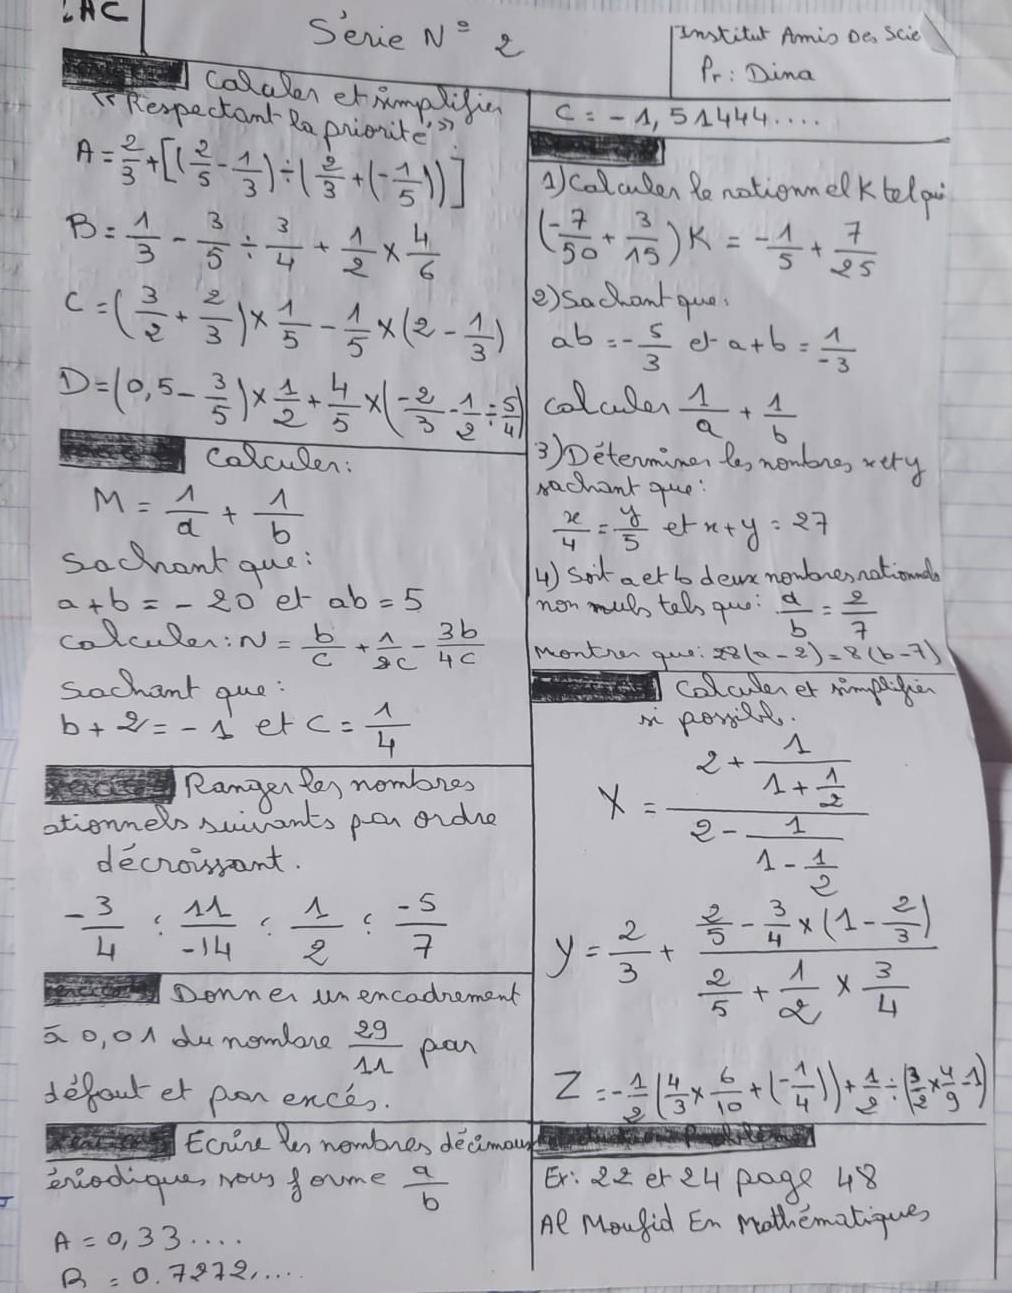 2AC
Série N° 2
Institut Amis Des Scie
Pr: Dina
Calculer et simplifier
"Respectant la priorité".
A = 2/3 + [(2/5 - 1/3) ÷ (2/3 + (-1/5))]
B = 1/3 - 3/5 ÷ 3/4 + 1/2 × 4/6
C = (3/2 + 2/3) × 1/5 - 1/5 × (2 - 1/3)
D = (0,5 - 3/5) × 1/2 + 4/5 × (-2/3 - 1/2 ÷ 5/4)
Calculer:
M = 1/a + 1/b
Sachant que:
a + b = - 20 et ab = 5
calculer: N = b/c + 1/2c - 3b/4c
Sachant que:
b + 2 = - 1 et c = 1/4
Ranger les nombres
ationnels suivants par ordre
décroissant.
-3/4 ; 11/-14 ; 1/2 ; -5/7
Donner un encadrement
à 0,01 du nombre 29/11 par
défaut et par excés.
Ecrire les nombres décimaux
ériodiques sous forme a/b
A = 0,33....
B = 0.7272,....
C = - 1,51444....
1) Calculer le rationnel K tel que
(-7/50 + 3/15) K = -1/5 + 7/25
2) Sachant que:
ab = -5/3 et a + b = 1/-3
calculer 1/a + 1/b
3) Déterminer les nombres x et y
sachant que:
x/4 = y/5 et x + y = 27
4) Soit a et b deux nombres rationnels
non nuls tels que: a/b = 2/7
Montrer que: 28(a - 2) = 8(b - 7)
Calculer et simplifier
si possible.
X = (2 + 1/(1 + 1/2)) / (2 - 1/(1 - 1/2))
Y = 2/3 + (2/5 - 3/4 × (1 - 2/3)) / (2/5 + 1/2 × 3/4)
Z = -1/2 (4/3 × 6/10 + (-1/4)) + 1/2 ÷ (3/2 × 4/9 - 1)
Ex: 22 et 24 page 48
Al Moufid En Mathématiques